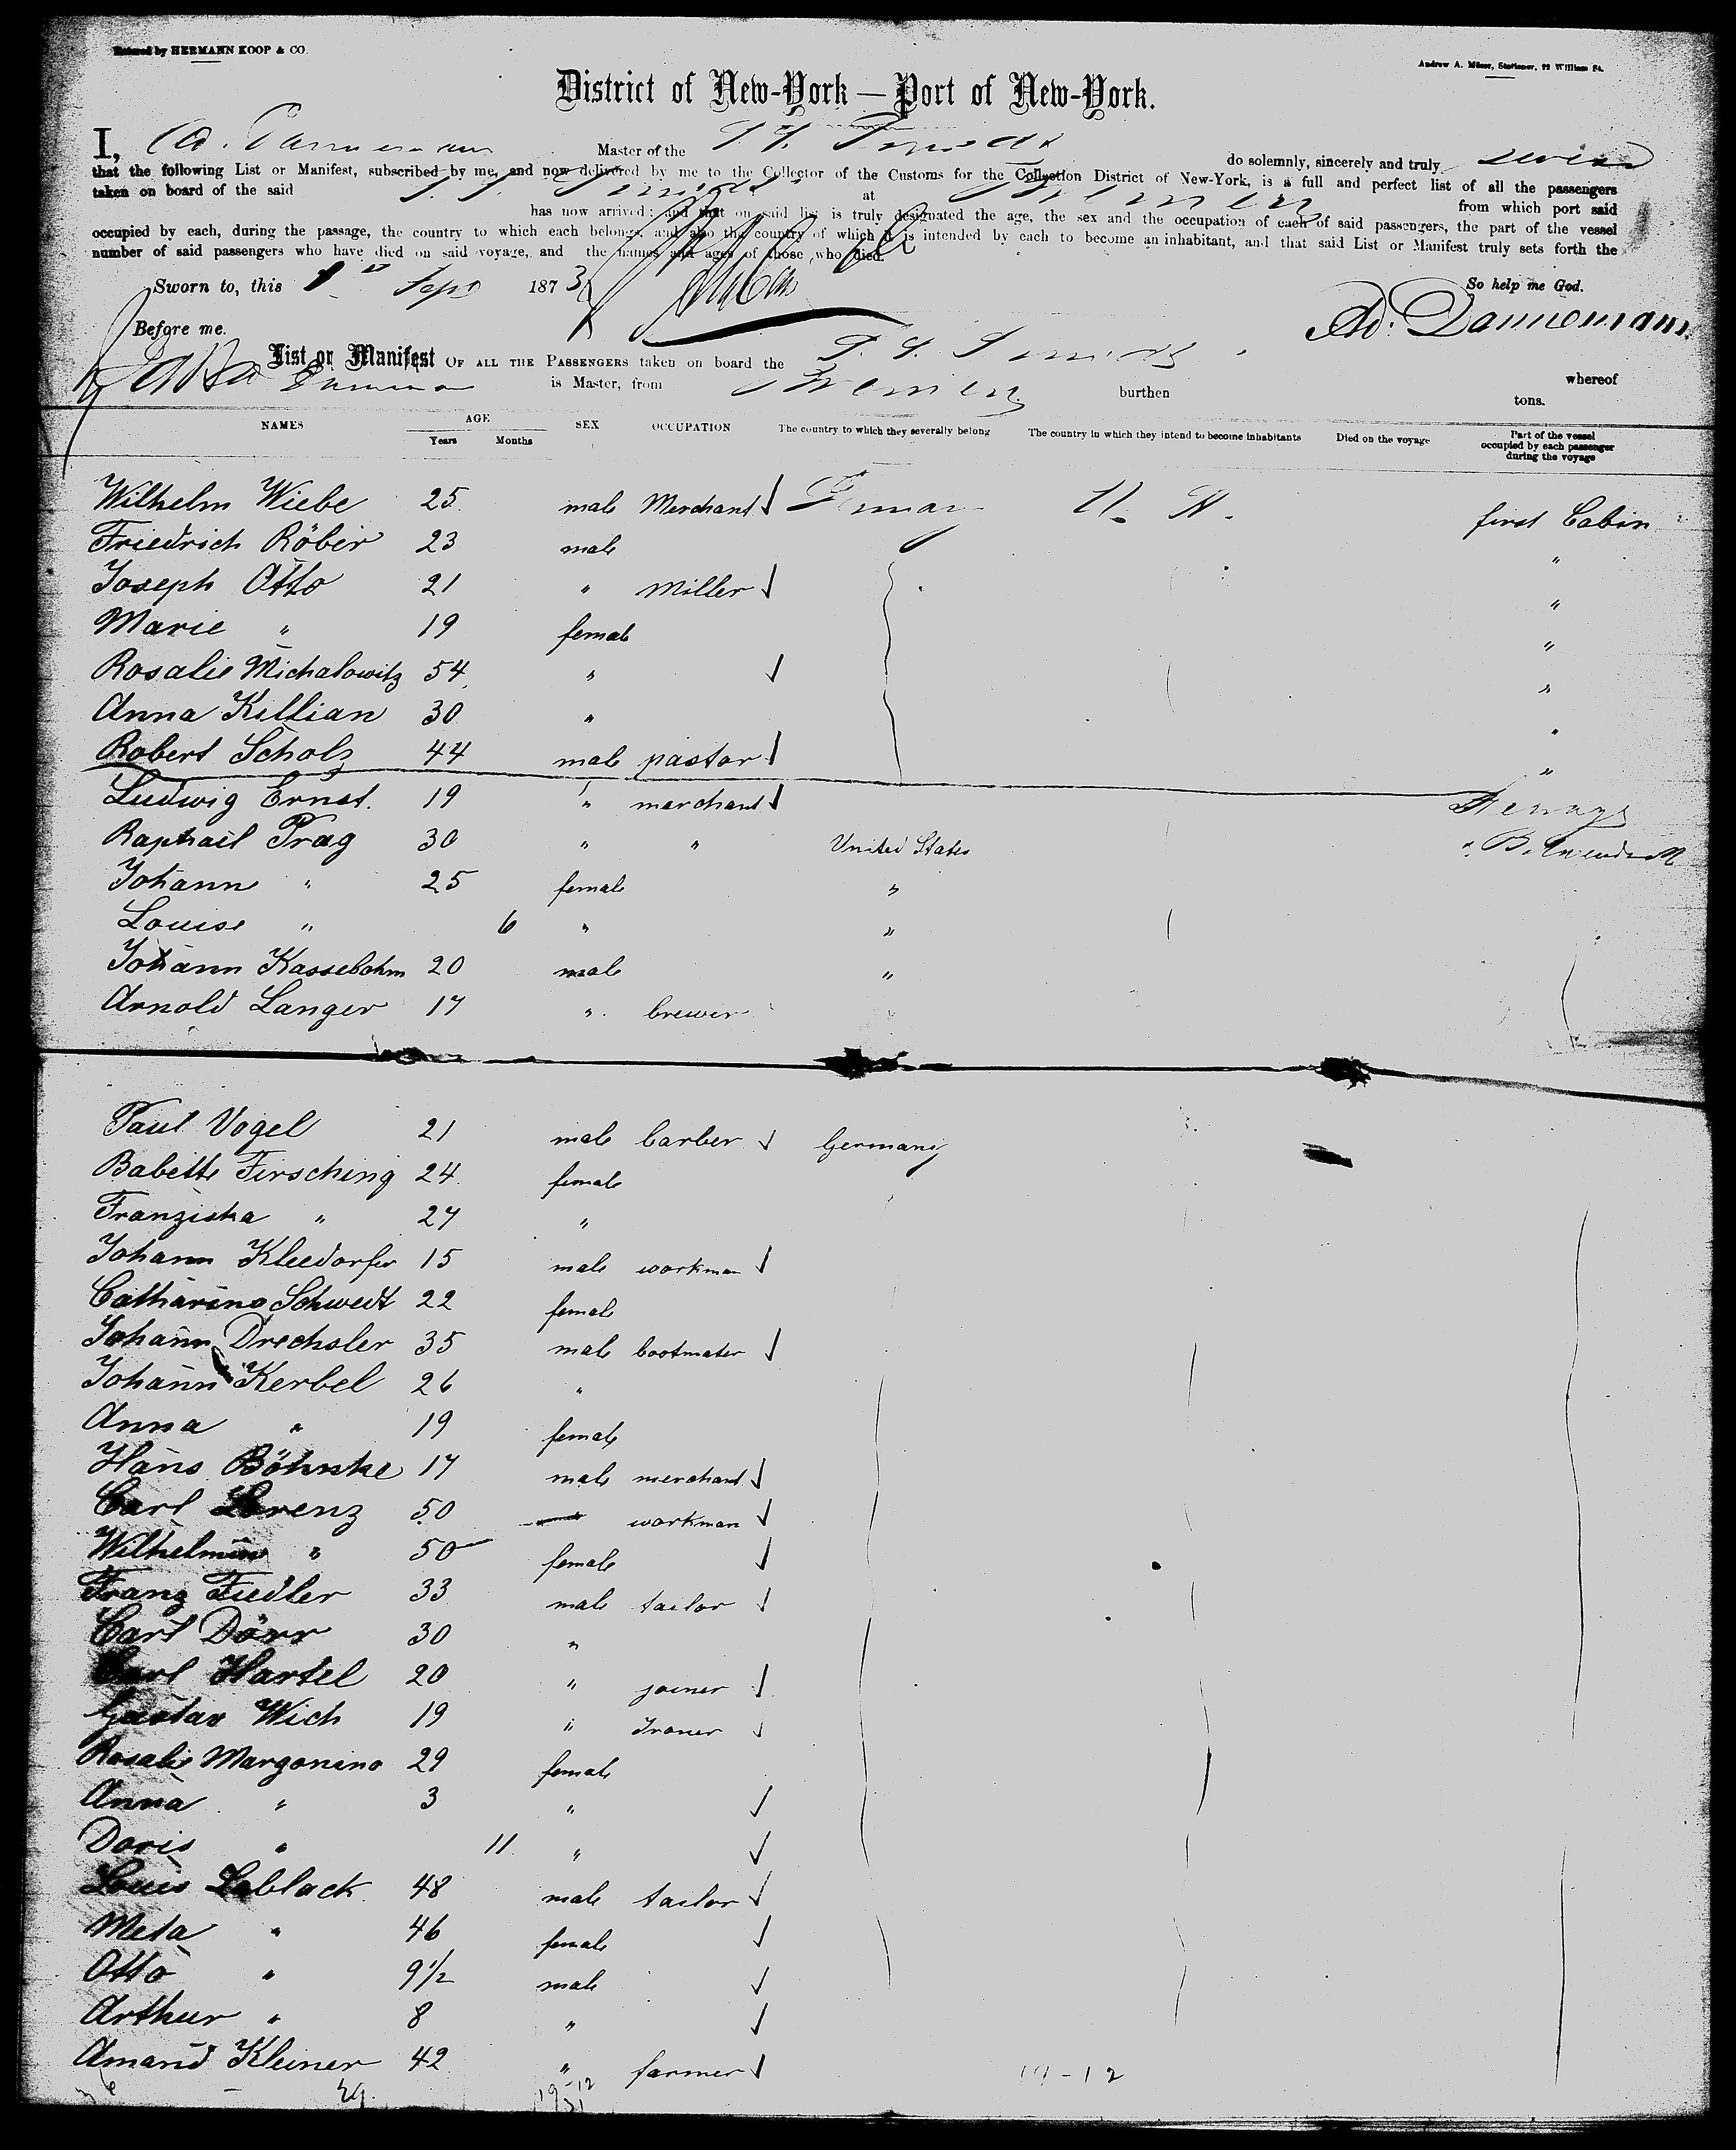 Entered by HERMANN KOOP & CO.
Andrew A. Stationer, 72 William St.
District of New-York — Port of New-York.
I, Ad. Dannemann Master of the do solemnly, sincerely and truly swear
that the following List or Manifest, subscribed by me, and now delivered by me to the Collector of the Customs for the Collection District of New-York, is a full and perfect list of all the passengers
taken on board of the said at Bremen from which port said
has now arrived; and that on said list is truly designated the age, the sex and the occupation of each of said passengers, the part of the vessel
occupied by each, during the passage, the country to which each belongs, and also the country of which it is intended by each to become an inhabitant, and that said List or Manifest truly sets forth the
number of said passengers who have died on said voyage, and the names and ages of those who died.
Sworn to, this 1st Sept 1873 So help me God.
Before me. Ad. Dannemann
List or Manifest OF ALL THE PASSENGERS taken on board the whereof
is Master, from Bremen burthen tons.
NAMES AGE Years Months SEX OCCUPATION The country to which they severally belong The country in which they intend to become inhabitants Died on the voyage Part of the vessel occupied by each passenger during the voyage
Wilhelm Wiebe 25 male Merchant U. first Cabin
Friedrich Röber 23 male "
Joseph Otto 21 " Miller "
Marie " 19 female "
Rosalie Michalowitz 54 " "
Anna Killian 30 " "
Robert Scholz 44 male pastor "
Ludwig Ernst. 19 " merchant
Raphael Prag 30 " " United States
Johann " 25 female "
Louise " 6 " "
Johann Kassebohm 20 male "
Arnold Langer 17 " brewer
Paul Vogel 21 male barber Germany
Babette Firsching 24 female
Franziska " 27 "
Johann Kleedorfer 15 male workman
Catharina Schwedt 22 female
Johann Drechsler 35 male bootmaker
Johann Kerbel 26 "
Anna " 19 female
Hans Böhnke 17 male merchant
Carl Lorenz 50 workman
Wilhelmine " 50 female
Franz Fiedler 33 male tailor
Carl Dörr 30 "
Carl Hartel 20 " joiner
Gustav Wich 19 "
Rosalie Margonino 29 female
Anna " 3 "
Doris " 11 "
Louis Lablack 48 male tailor
Meta " 46 female
Otto " 9½ male
Arthur " 8 "
Amand Kleiner 42 " farmer
19-12